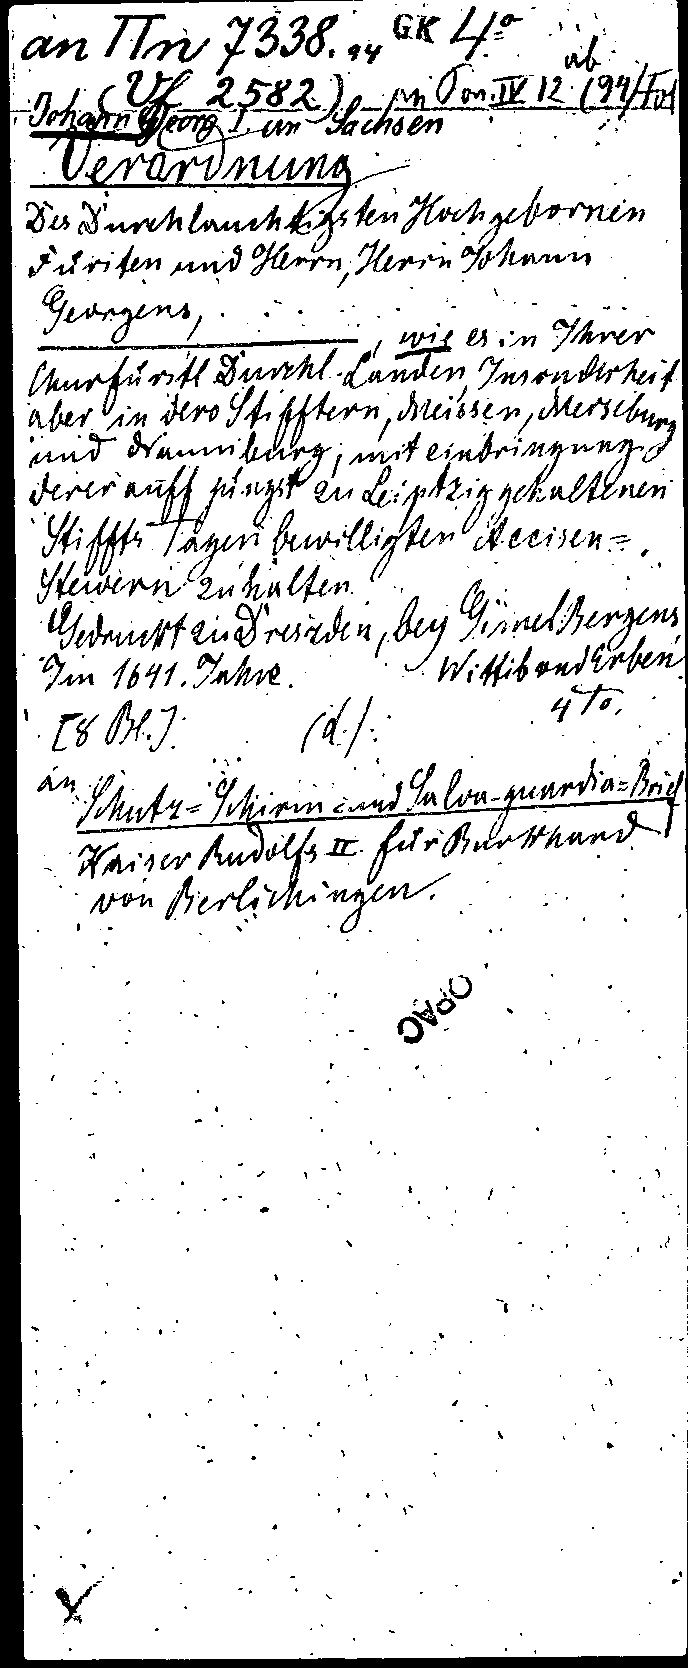 an IIn 7338. 94 GK 4°
(Vf 2582) an Pon. IV 12 (94)/Fol
ab
Johann Georg I. in Sachsen
Verordnung
Des Durchlauchtigsten Hochgebornen
Fürsten und Herrn, Herrn Johann
Georgens,
, wie es in Ihrer
Churfürstl Durchl. Landen, Insonderheit
aber in dero Stifftern, Meissen, Merseburg
und Naumburg, mit einbringung
derer auff jüngst zu Leiptzig gehaltenen
Stiffts Tägen bewilligten Accisen=
Stewern zuhalten
Gedruckt zu Dreszden, bey Gimel Bergens
Im 1641. Jahre. Wittib und Erben
[8 Bl.]. (d.). 4to.
an Schutz= Schirm= und Salva-guardia=Brief
Kaiser Rudolfs II. für Burkhard
von Berlichingen.
OPAC